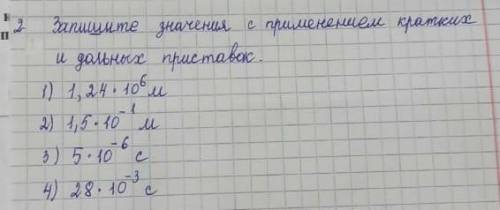 2 Запишите значения с применением кратких
и дольных приставок.
1) 1,24 · 10⁶ м
2) 1,5 · 10⁻¹ м
3) 5 · 10⁻⁶ с
4) 28 · 10⁻³ с